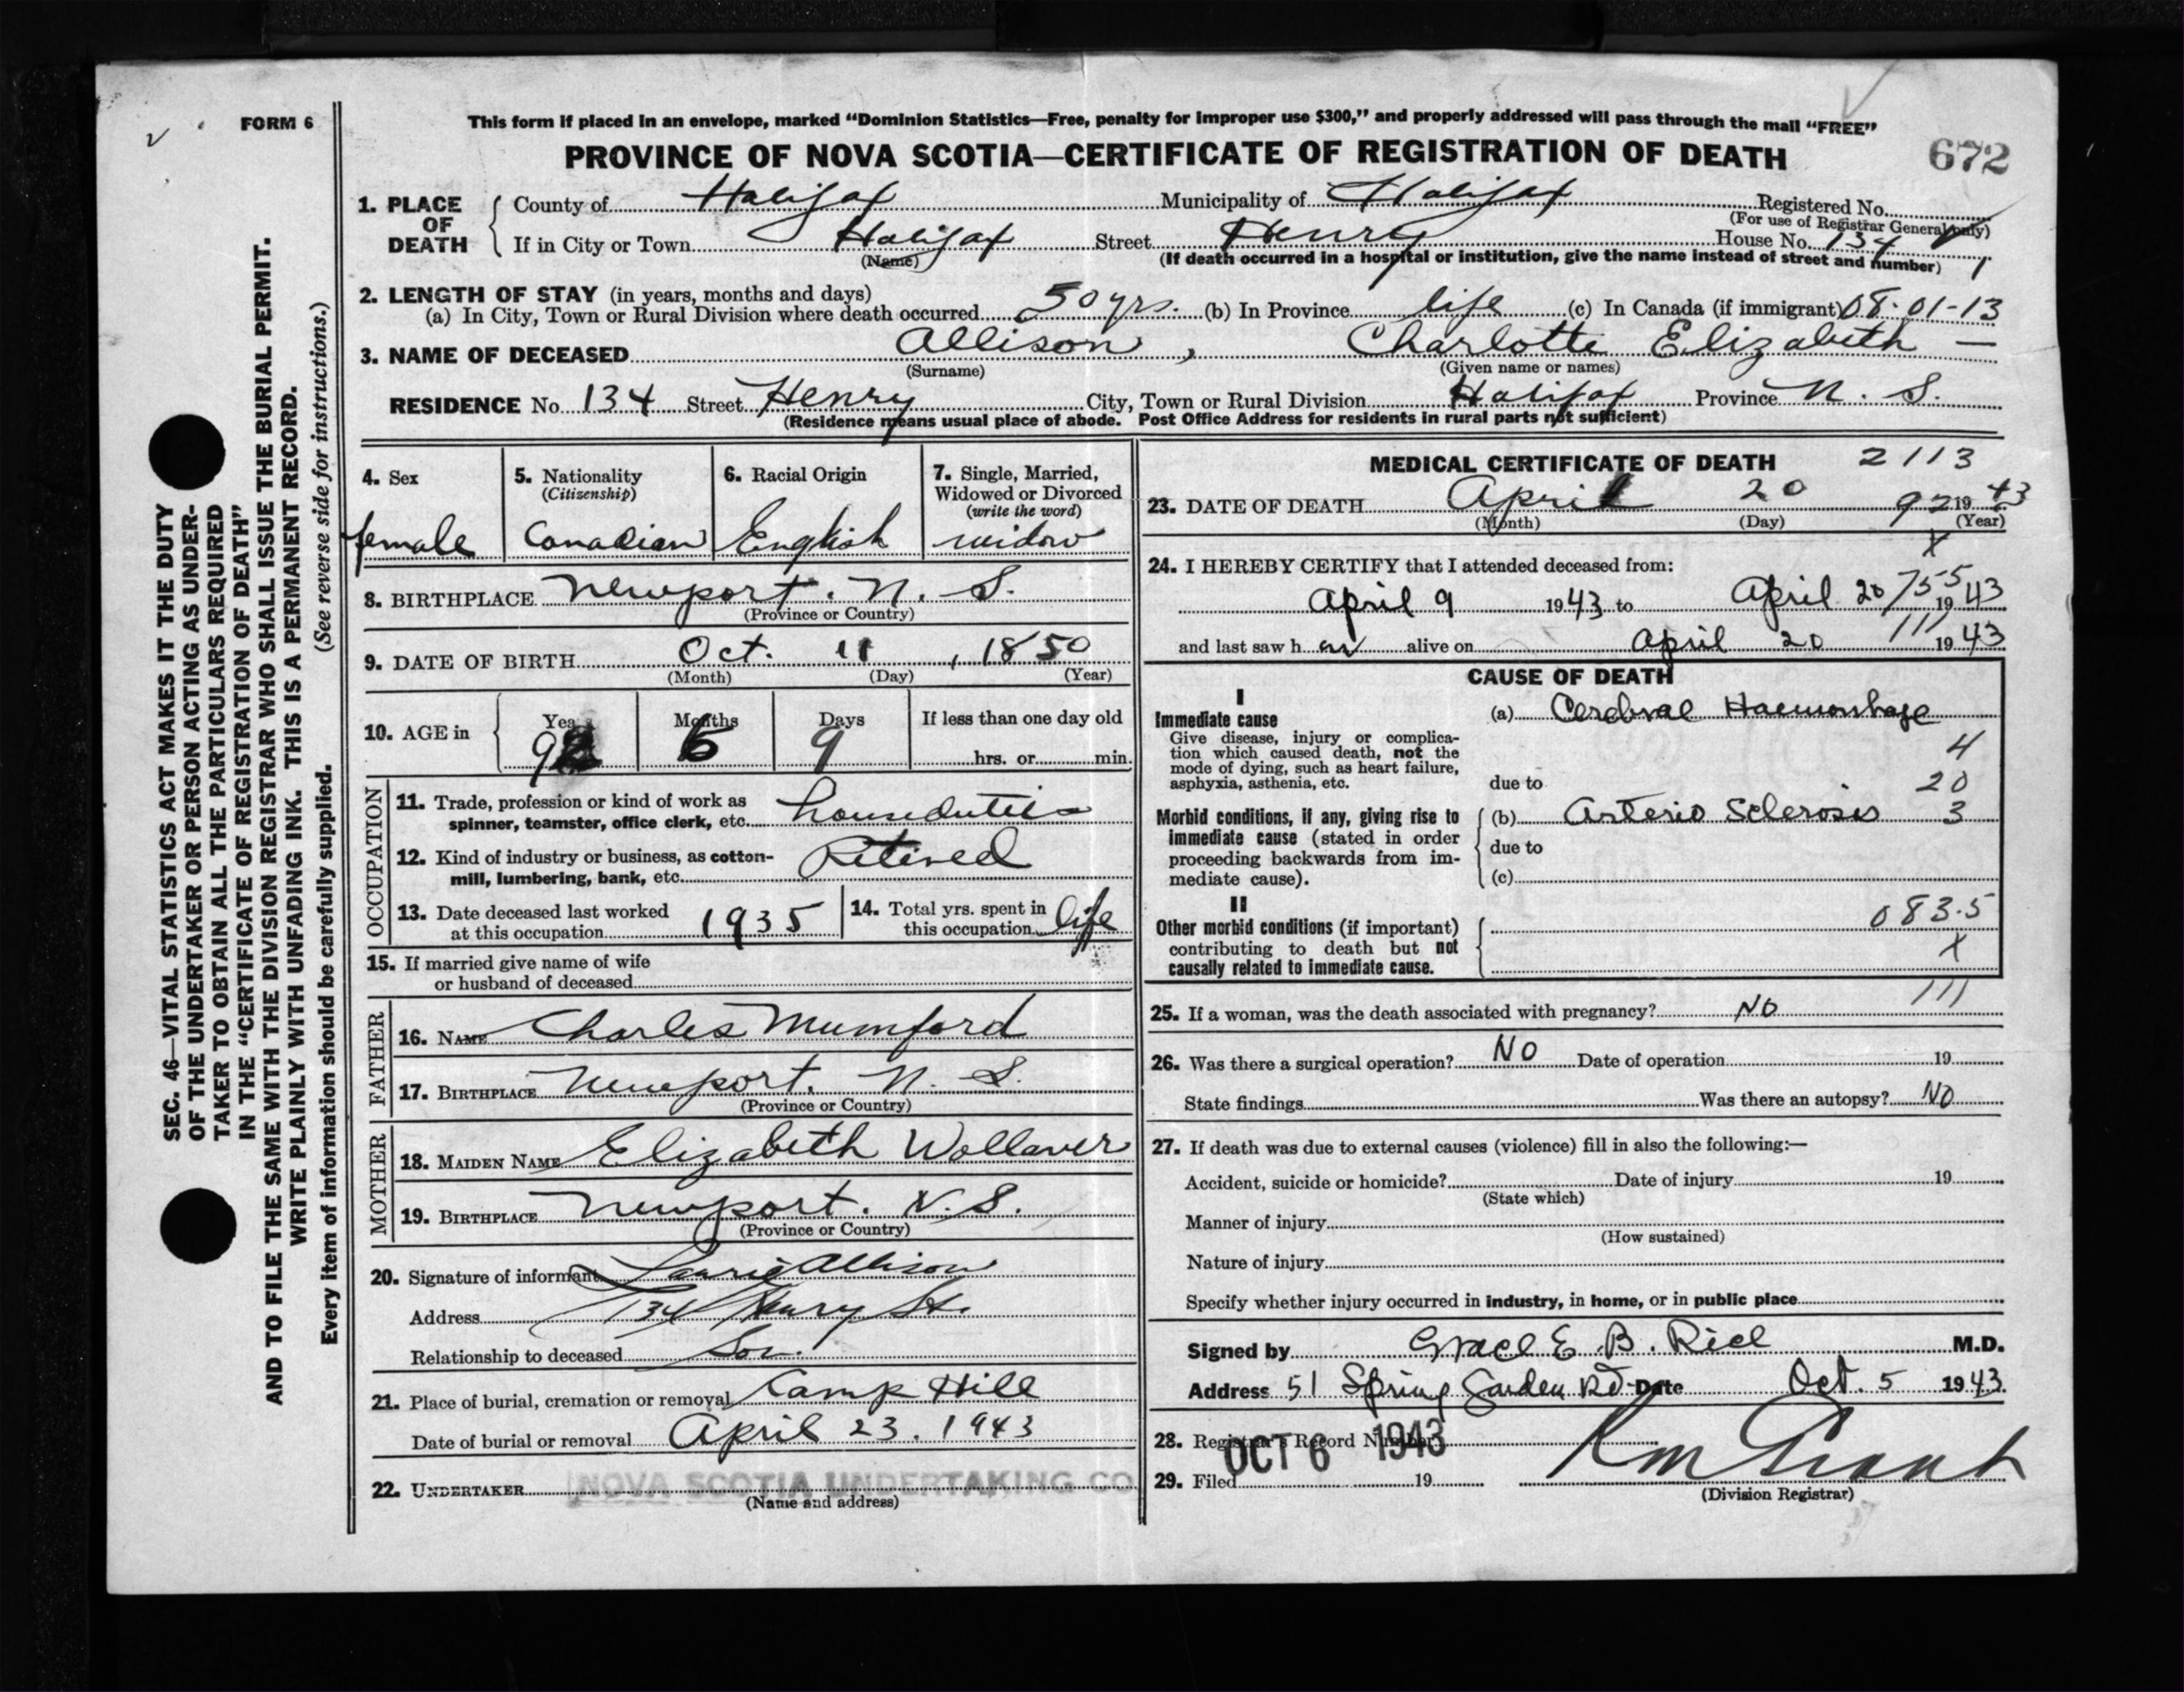 FORM 6
This form if placed in an envelope, marked “Dominion Statistics—Free, penalty for improper use $300,” and properly addressed will pass through the mail “FREE”
PROVINCE OF NOVA SCOTIA—CERTIFICATE OF REGISTRATION OF DEATH
672
1. PLACE OF DEATH
County of Halifax Municipality of Halifax Registered No.
(For use of Registrar General only)
If in City or Town Halifax Street Henry House No. 134
(Name) (If death occurred in a hospital or institution, give the name instead of street and number) 1
2. LENGTH OF STAY (in years, months and days)
(a) In City, Town or Rural Division where death occurred 50 yrs. (b) In Province life (c) In Canada (if immigrant) 08.01-13
3. NAME OF DECEASED Allison, Charlotte Elizabeth —
(Surname) (Given name or names)
RESIDENCE No. 134 Street Henry City, Town or Rural Division Halifax Province N. S.
(Residence means usual place of abode. Post Office Address for residents in rural parts not sufficient)
4. Sex
female
5. Nationality
(Citizenship)
Canadian
6. Racial Origin
English
7. Single, Married,
Widowed or Divorced
(write the word)
widow
8. BIRTHPLACE Newport. N. S.
(Province or Country)
9. DATE OF BIRTH Oct. 11, 1850
(Month) (Day) (Year)
10. AGE in
Years Months Days If less than one day old
92 6 9 hrs. or min.
OCCUPATION
11. Trade, profession or kind of work as
spinner, teamster, office clerk, etc. houseduties
12. Kind of industry or business, as cotton-
mill, lumbering, bank, etc. Retired
13. Date deceased last worked
at this occupation 1935
14. Total yrs. spent in
this occupation life
15. If married give name of wife
or husband of deceased
FATHER
16. NAME Charles Mumford
17. BIRTHPLACE Newport. N. S.
(Province or Country)
MOTHER
18. MAIDEN NAME Elizabeth Wollaver
19. BIRTHPLACE Newport. N. S.
(Province or Country)
20. Signature of informant Laurie Allison
Address 134 Henry St.
Relationship to deceased Son.
21. Place of burial, cremation or removal Camp Hill
Date of burial or removal April 23. 1943
22. UNDERTAKER NOVA SCOTIA UNDERTAKING CO
(Name and address)
MEDICAL CERTIFICATE OF DEATH 2113
23. DATE OF DEATH April 20 92 1943
(Month) (Day) (Year)
X
24. I HEREBY CERTIFY that I attended deceased from:
April 9 1943 to April 20 755 1943
and last saw her alive on April 20 111 1943
CAUSE OF DEATH
I
Immediate cause
Give disease, injury or complica-
tion which caused death, not the
mode of dying, such as heart failure,
asphyxia, asthenia, etc.
(a) Cerebral Haemorrhage
4
due to
20
Morbid conditions, if any, giving rise to
immediate cause (stated in order
proceeding backwards from im-
mediate cause).
(b) Arterio Sclerosis 3
due to
(c)
II
Other morbid conditions (if important)
contributing to death but not
causally related to immediate cause.
083.5
X
111
25. If a woman, was the death associated with pregnancy? NO
26. Was there a surgical operation? NO Date of operation 19
State findings Was there an autopsy? NO
27. If death was due to external causes (violence) fill in also the following:—
Accident, suicide or homicide? Date of injury 19
(State which)
Manner of injury
(How sustained)
Nature of injury
Specify whether injury occurred in industry, in home, or in public place
Signed by Grace E. B. Rice M.D.
Address 51 Spring Garden Rd Date Oct. 5 1943
28. Registrar's Record Number
OCT 6 1943
29. Filed 19
(Division Registrar)
SEC. 46—VITAL STATISTICS ACT MAKES IT THE DUTY
OF THE UNDERTAKER OR PERSON ACTING AS UNDER-
TAKER TO OBTAIN ALL THE PARTICULARS REQUIRED
IN THE “CERTIFICATE OF REGISTRATION OF DEATH”
AND TO FILE THE SAME WITH THE DIVISION REGISTRAR WHO SHALL ISSUE THE BURIAL PERMIT.
WRITE PLAINLY WITH UNFADING INK. THIS IS A PERMANENT RECORD.
Every item of information should be carefully supplied. (See reverse side for instructions.)